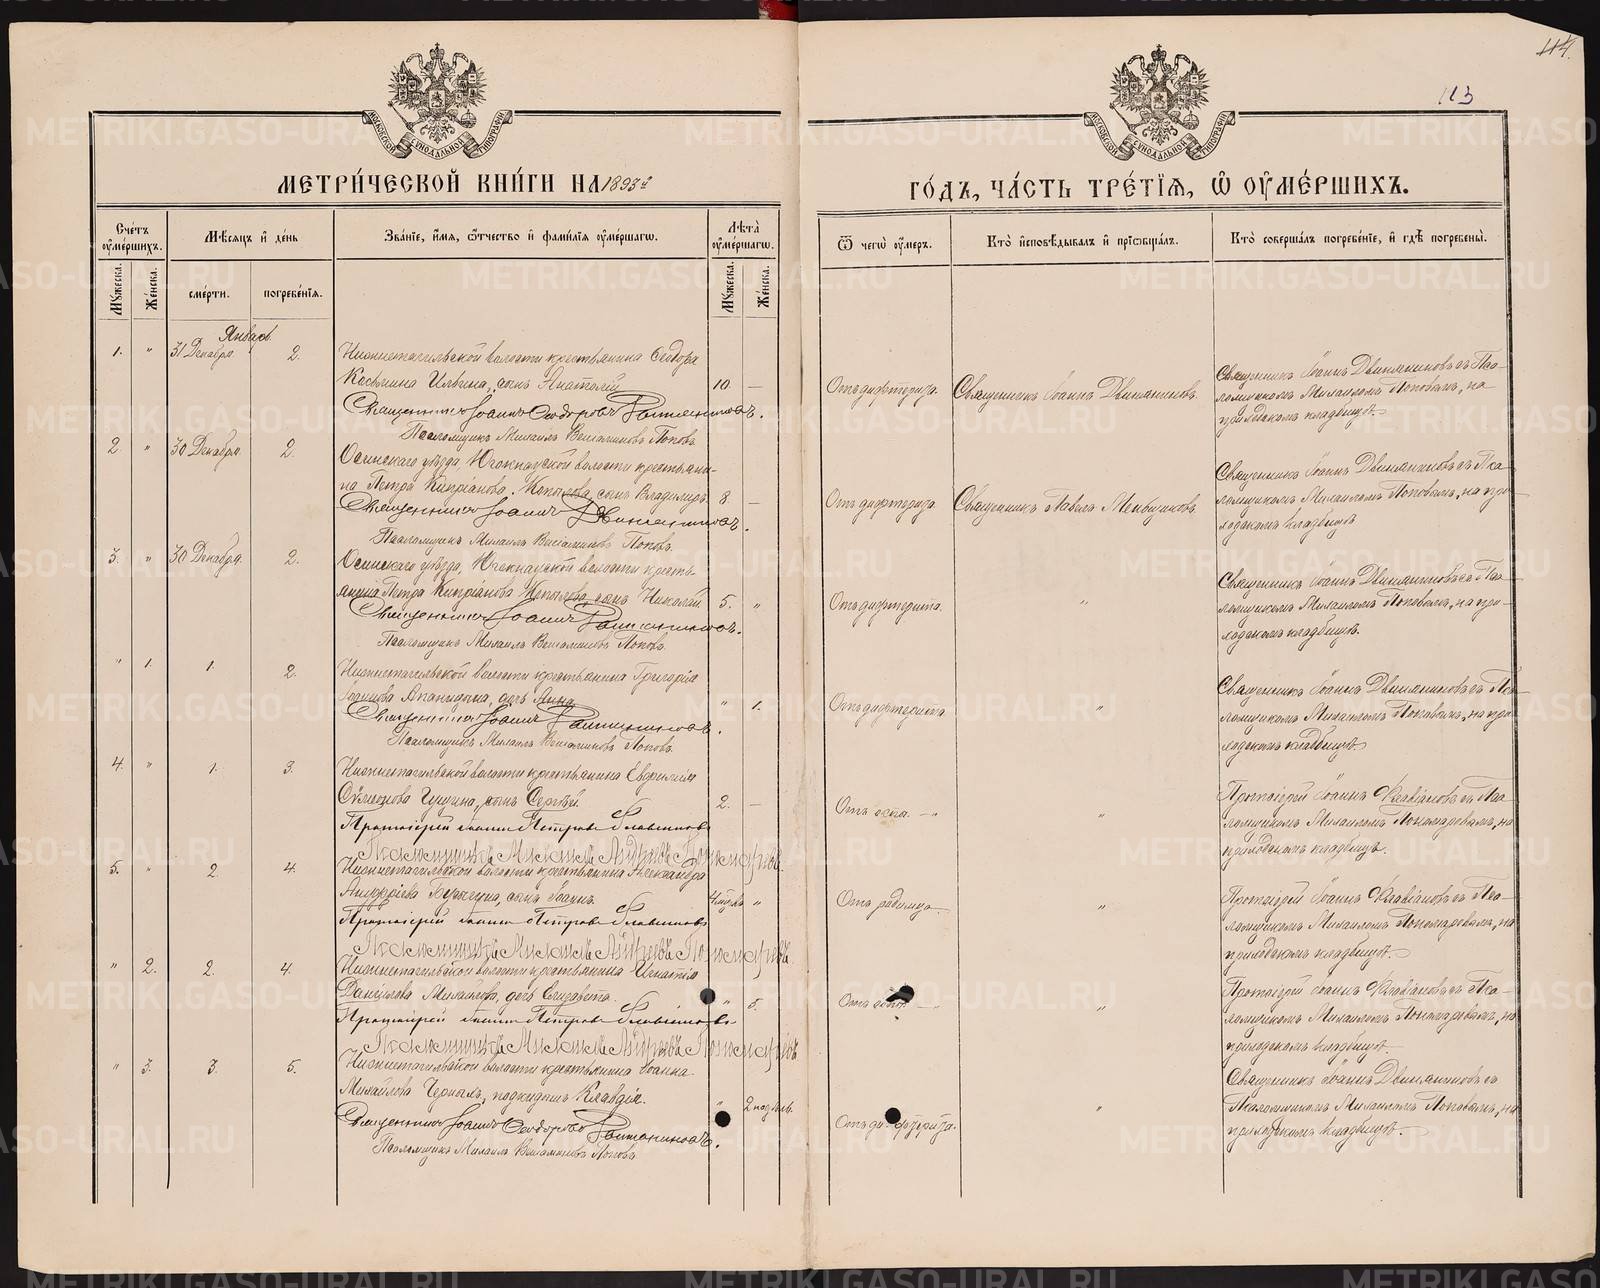 114.
113
МОСКОВСКОЙ СѴНОДАЛЬНОЙ ТИПОГРАФІИ
МОСКОВСКОЙ СѴНОДАЛЬНОЙ ТИПОГРАФІИ
МЕТРИ́ЧЕСКОЙ КНИ́ГИ НА 1893й
ГО́ДЪ, ЧА́СТЬ ТРЕ́ТІѦ, Ѡ ОУ҆МЕ́РШИХЪ.
Сче́тъ оу҆ме́ршихъ.
Мꙋ́жеска.
Же́нска.
Мѣ́сѧцъ и҆ де́нь
сме́рти.
погребе́нїѧ.
Зва́нїе, и҆́мѧ, ѻ҆́тчество и҆ фами́лїѧ оу҆ме́ршагѡ.
Лѣ́та оу҆ме́ршагѡ.
Мꙋ́жеска.
Же́нска.
Ѿ чегѡ̀ оу҆́меръ.
Кто̀ и҆сповѣ́дывалъ и҆ прїѡбща́лъ.
Кто̀ соверша́лъ погребе́нїе, и҆ гдѣ̀ погребены̀.
Январь
1. " 31 Декабря. 2.
Нижнетагильской волости крестьянина Ѳеодора
Косьмина Ильина, сынъ Анатолій 10 —
Священникъ Іоаннъ Ѳеодоровъ Двиняниновъ.
Псаломщикъ Михаилъ Веніаминовъ Поповъ.
Отъ дифтерита.
Священникъ Іоаннъ Двиняниновъ.
Священникъ Іоаннъ Двиняниновъ съ Пса-
ломщикомъ Михаиломъ Поповымъ, на
приходскомъ кладбищѣ.
2 " 30 Декабря. 2.
Осинскаго уѣзда, Югокнауфской волости крестьяни-
на Петра Кипріанова Копылова, сынъ Владиміръ 8 —
Священникъ Іоаннъ Двиняниновъ.
Псаломщикъ Михаилъ Веніаминовъ Поповъ.
Отъ дифтерита.
Священникъ Павелъ Меньщиковъ
Священникъ Іоаннъ Двиняниновъ съ Пса-
ломщикомъ Михаиломъ Поповымъ, на при-
ходскомъ кладбищѣ
3. " 30 Декабря. 2.
Осинскаго уѣзда, Югокнауфской волости кресть-
янина Петра Кипріанова Копылова, сынъ Николай 5. "
Священникъ Іоаннъ Двиняниновъ.
Псаломщикъ Михаилъ Веніаминовъ Поповъ.
Отъ дифтерита.
"
Священникъ Іоаннъ Двиняниновъ съ Пса-
ломщикомъ Михаиломъ Поповымъ, на при-
ходскомъ кладбищѣ.
" 1. 1. 2.
Нижнетагильской волости крестьянина Григорія
Іоаннова дочь Анна " 1.
Священникъ Іоаннъ Двиняниновъ.
Псаломщикъ Михаилъ Веніаминовъ Поповъ.
Отъ дифтерита.
"
Священникъ Іоаннъ Двиняниновъ съ Пса-
ломщикомъ Михаиломъ Поповымъ, на при-
ходскомъ кладбищѣ
4. " 1. 3.
Нижнетагильской волости крестьянина Евфимія
Сѵмеонова Гущина, сынъ Сергѣй. 2. —
Протоіерей Іоаннъ Петровъ Флавіановъ
Псаломщикъ Михаилъ Андреевъ Пономаревъ.
Отъ оспы. — "
"
Протоіерей Іоаннъ Флавіановъ съ Пса-
ломщикомъ Михаиломъ Пономаревымъ, на
приходскомъ кладбищѣ.
5. " 2. 4.
Нижнетагильской волости крестьянина Александра
сынъ Іоаннъ. "
Протоіерей Іоаннъ Петровъ Флавіановъ
Псаломщикъ Михаилъ Андреевъ Пономаревъ.
Отъ родимца.
"
Протоіерей Іоаннъ Флавіановъ съ Пса-
ломщикомъ Михаиломъ Пономаревымъ, на
приходскомъ кладбищѣ.
" 2. 2. 4.
Нижнетагильской волости крестьянина Игнатія
Даніилова дочь Елизавета. " 5.
Протоіерей Іоаннъ Петровъ Флавіановъ
Псаломщикъ Михаилъ Андреевъ Пономаревъ
Отъ оспы. — "
"
Протоіерей Іоаннъ Флавіановъ съ Пса-
ломщикомъ Михаиломъ Пономаревымъ, на
приходскомъ кладбищѣ.
" 3. 3. 5.
Нижнетагильской волости крестьянина Іоанна
Михайлова подкидышъ Клавдія. "
Священникъ Іоаннъ Ѳеодоровъ Двиняниновъ.
Псаломщикъ Михаилъ Веніаминовъ Поповъ.
Отъ дифтерита.
"
Священникъ Іоаннъ Двиняниновъ съ
Псаломщикомъ Михаиломъ Поповымъ, на
приходскомъ кладбищѣ.
METRIKI.GASO-URAL.RU